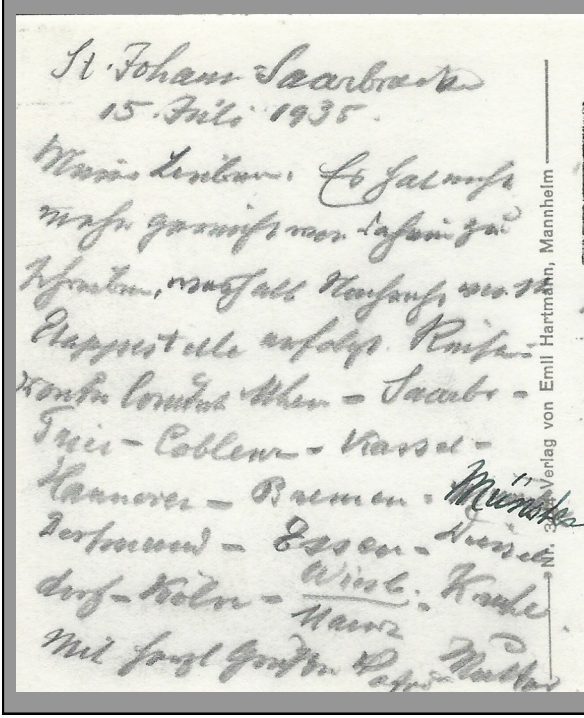 St. Johann-Saarbrücken
15. Juli 1935.
Meine Lieben. Es hat nicht
mehr gereicht von daheim zu
schreiben, weshalb Nachricht von der
Etappestelle erfolgt. Reise-
route lautet Alzey - Saarbr -
Trier - Coblenz - Kassel -
Hannover - Bremen - Münster
Dortmund - Essen - Düssel
dorf - Köln - Wiesb. Karlsr
Mainz
Mit herzl Grüßen Vater Mutter
Nr. Verlag von Emil Hartmann, Mannheim